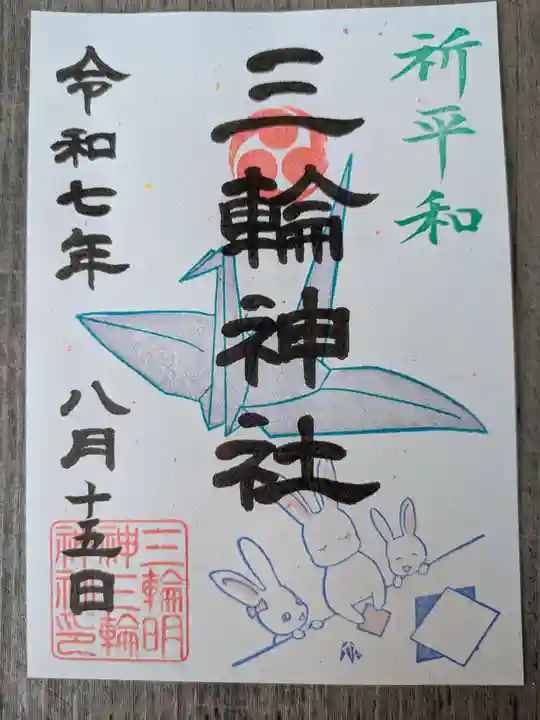 祈平和
三輪神社
令和七年 八月十五日
三輪明
神三輪
神社印